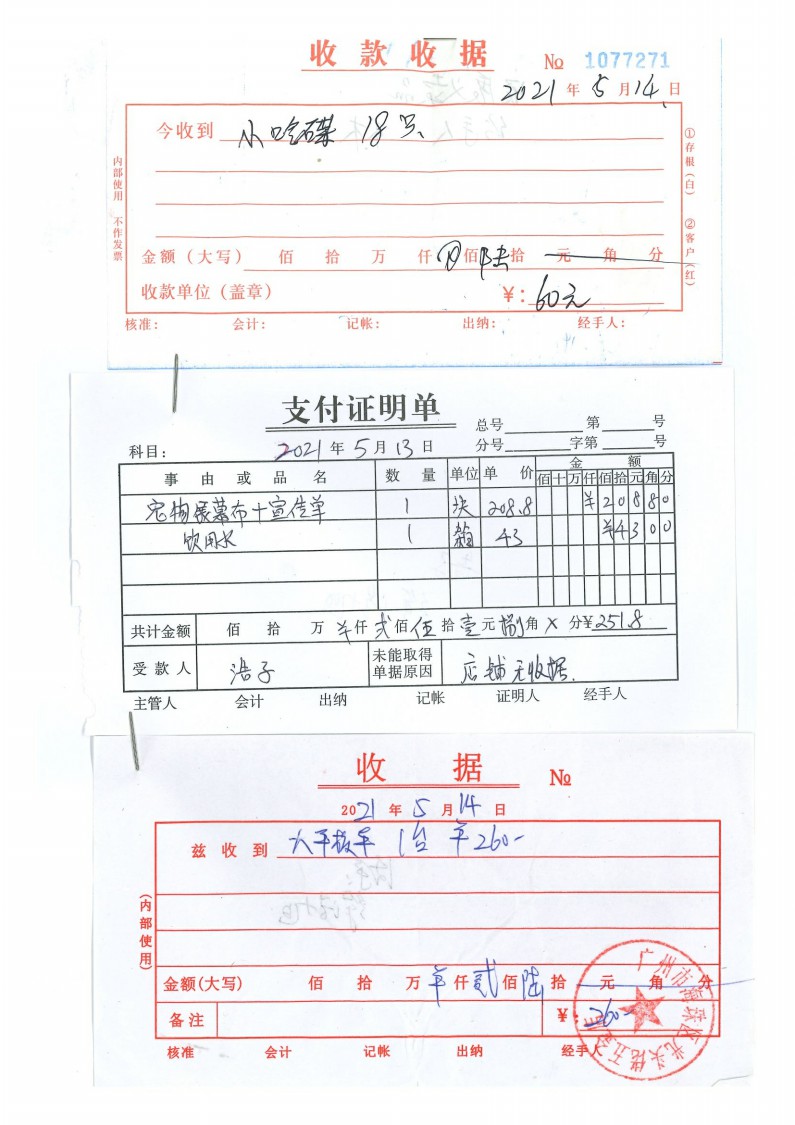 收款收据 № 1077271
2021 年 5 月 14 日
今收到 小哈碟 18只
金额（大写） 佰 拾 万 仟 佰 陆拾 元 角 分
收款单位（盖章） ¥: 60元
核准: 会计: 记帐: 出纳: 经手人:
内部使用 不作发票
①存根（白） ②客户（红）
支付证明单
总号 第 号
科目: 2021 年 5 月 13 日 分号 字第 号
事 由 或 品 名 数 量 单位 单 价 金 额
佰 十 万 仟 佰 拾 元 角 分
宠物屋幕布+宣传单 1 块 208.8 ¥ 2 0 8 8 0
饮用水 1 箱 43 ¥ 4 3 0 0
共计金额 佰 拾 万 ¥仟 贰佰 伍拾 壹元 捌角 X 分 ¥251.8
受款人 浩子 未能取得单据原因 店铺无收据.
主管人 会计 出纳 记帐 证明人 经手人
收 据 №
2021 年 5 月 14 日
兹收到 大平板车 1台 ¥260-
(内部使用)
金额(大写) 佰 拾 万 ¥仟 贰佰 陆拾 元 角 分
备注 ¥: 260-
核准 会计 记帐 出纳 经手人
广州市海珠区